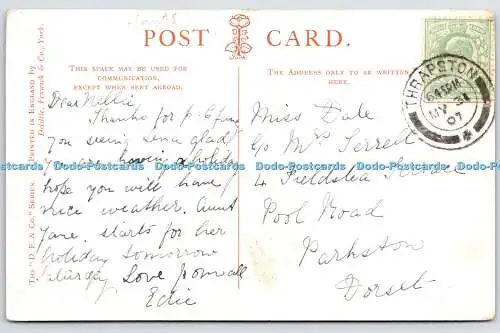 POST CARD.
THIS SPACE MAY BE USED FOR
COMMUNICATION,
EXCEPT WHEN SENT ABROAD.
THE ADDRESS ONLY TO BE WRITTEN
HERE.
THE "D. F. & CO." SERIES.
PRINTED IN ENGLAND BY
Delittle, Fenwick & Co., York.
THRAPSTON
07
Dear Nellie
Thanks for p.c.
you seeing Lena glad
you are having a holiday
hope you will have
nice weather. Aunt
Jane starts for her
holiday tomorrow
Saturday Love from all
Edie
Miss Dale
c/o Mrs Terrell
4 Fieldslea Terrace
Pool Road
Parkston
Dorset
Dodo-Postcards Dodo-Postcards Dodo-Postcards Dodo-Postcards